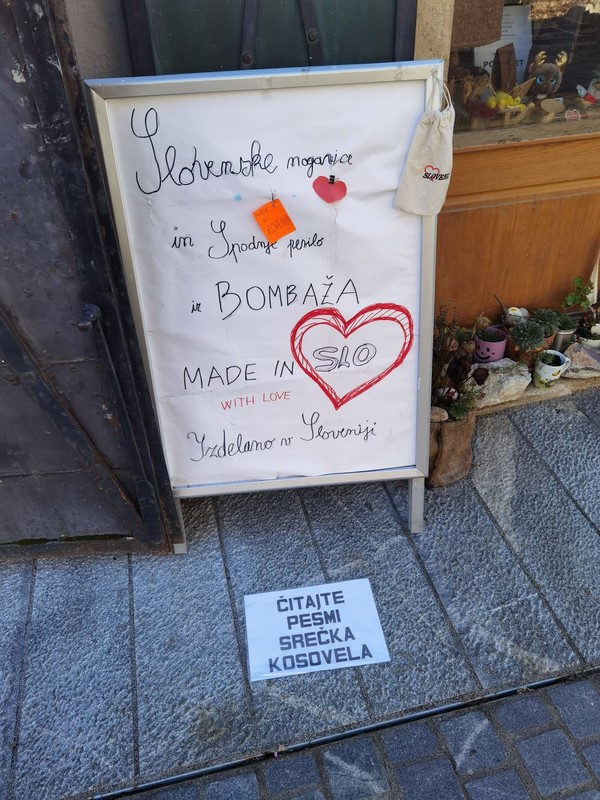 Slovenske nogavice
in Spodnje perilo
iz BOMBAŽA
MADE IN SLO
WITH LOVE
Izdelano v Sloveniji
ČITAJTE
PESMI
SREČKA
KOSOVELA